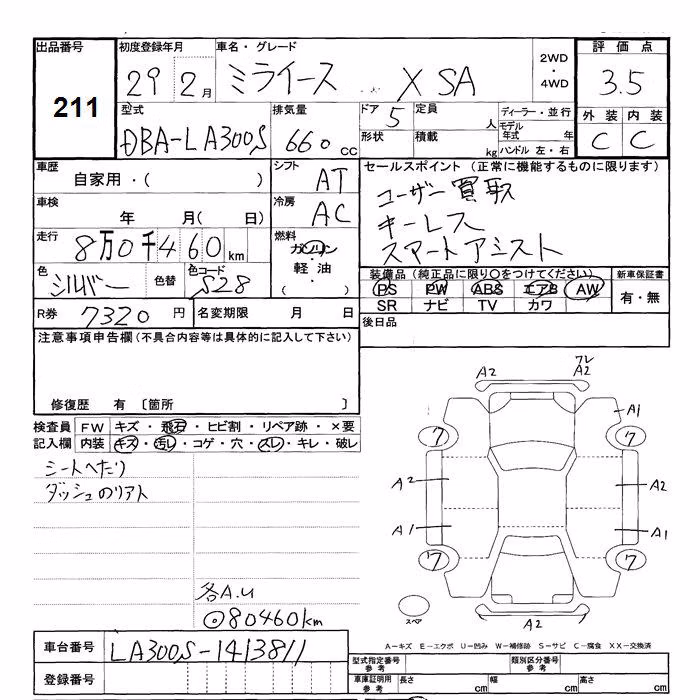 出品番号 初度登録年月 車名・グレード 2WD・4WD 評価点
211 29 2月 ミライース X SA 3.5
型式 排気量 ドア 定員 人 ディーラー・並行 外装 内装
DBA-LA300S 660cc 5 形状 積載 kg モデル年式 年 ハンドル 左・右 C C
車歴 自家用・( ) シフト AT セールスポイント(正常に機能するものに限ります)
車検 年 月( 日) 冷房 AC ユーザー買取
キーレス
走行 8万0千460km 燃料 ガソリン・軽油・( ) スマートアシスト
色 シルバー 色替 色コード S28 装備品(純正品に限り○をつけてください) 新車保証書
PS PW ABS エアB AW 有・無
SR ナビ TV カワ
R券 7320円 名変期限 月 日 後日品
注意事項申告欄(不具合内容等は具体的に記入して下さい)
修復歴 有 〔箇所 〕
検査員記入欄 FW キズ・飛石・ヒビ割・リペア跡・×要
内装 キズ・汚レ・コゲ・穴・スレ・キレ・破レ
シートへたり
ダッシュのリアト
各A.U
◎80460km
A2 フレ A2
A1
7 7
A2 A2
A1 A1
7 7
スペア A2
A-キズ E-エクボ U-凹み W-補修跡 S-サビ C-腐食 XX-交換済
車台番号 LA300S-1413811
型式指定番号 参考 類別区分番号 参考
登録番号 車庫証明用 参考 長さ cm 幅 cm 高さ cm